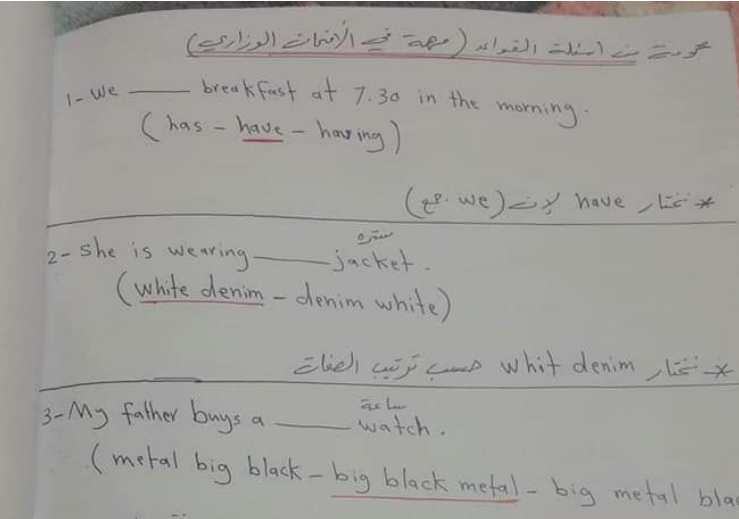 مجموعة من اسئلة القواعد (مهمة في الامتحان الوزاري)
1- We ___ breakfast at 7.30 in the morning.
(has - have - having)
* نختار have لان (we جمع)
سترة
2- She is wearing ___ jacket.
(white denim - denim white)
* نختار whit denim حسب ترتيب الصفات
ساعة
3- My father buys a ___ watch.
(metal big black - big black metal - big metal blac